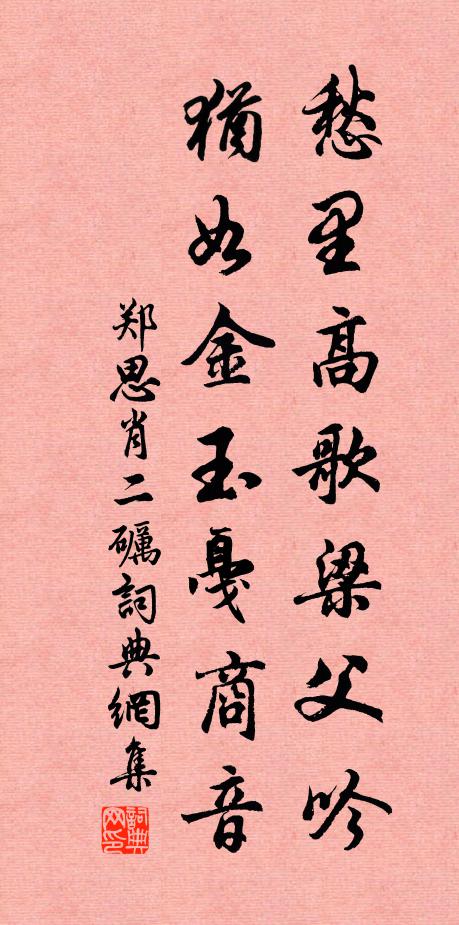 愁里高歌梁父吟
猶如金玉戛商音
郑思肖二礪詞典網集
詞典网印